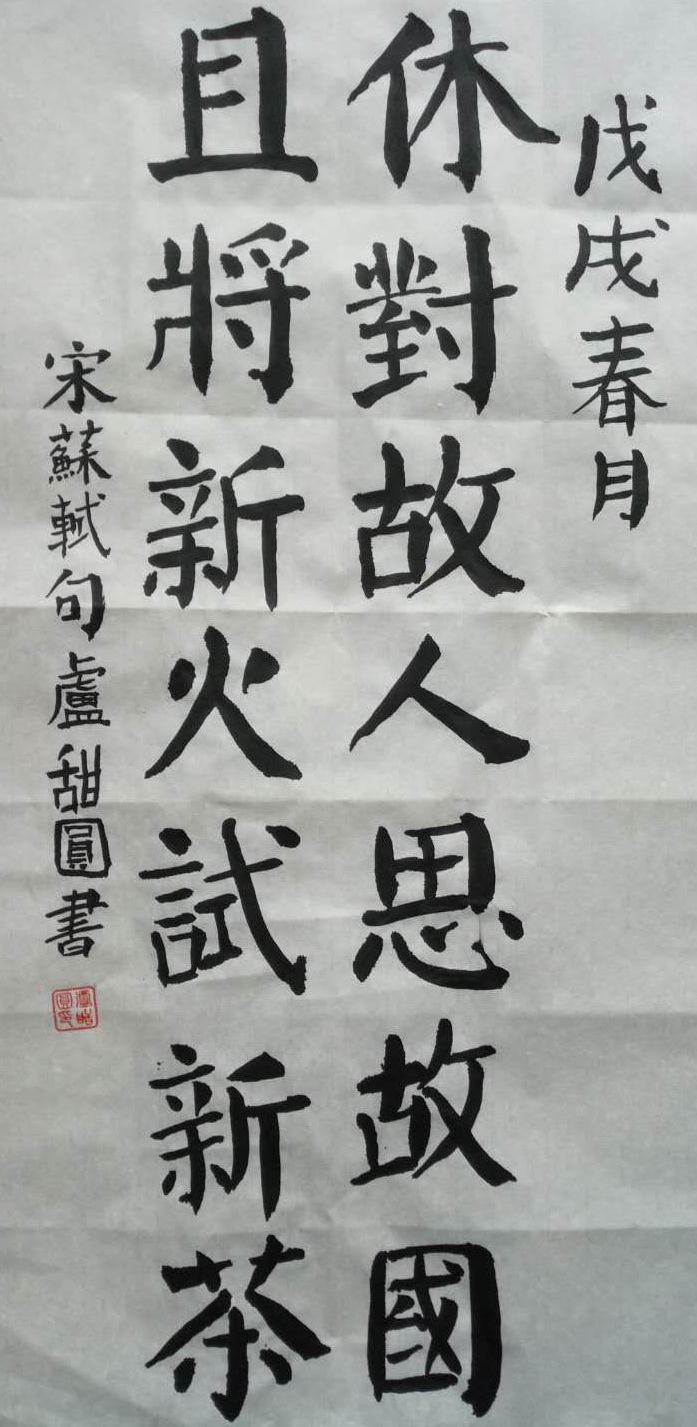 戊戌春月
休對故人思故國
且將新火試新茶
宋蘇軾句盧甜圓書